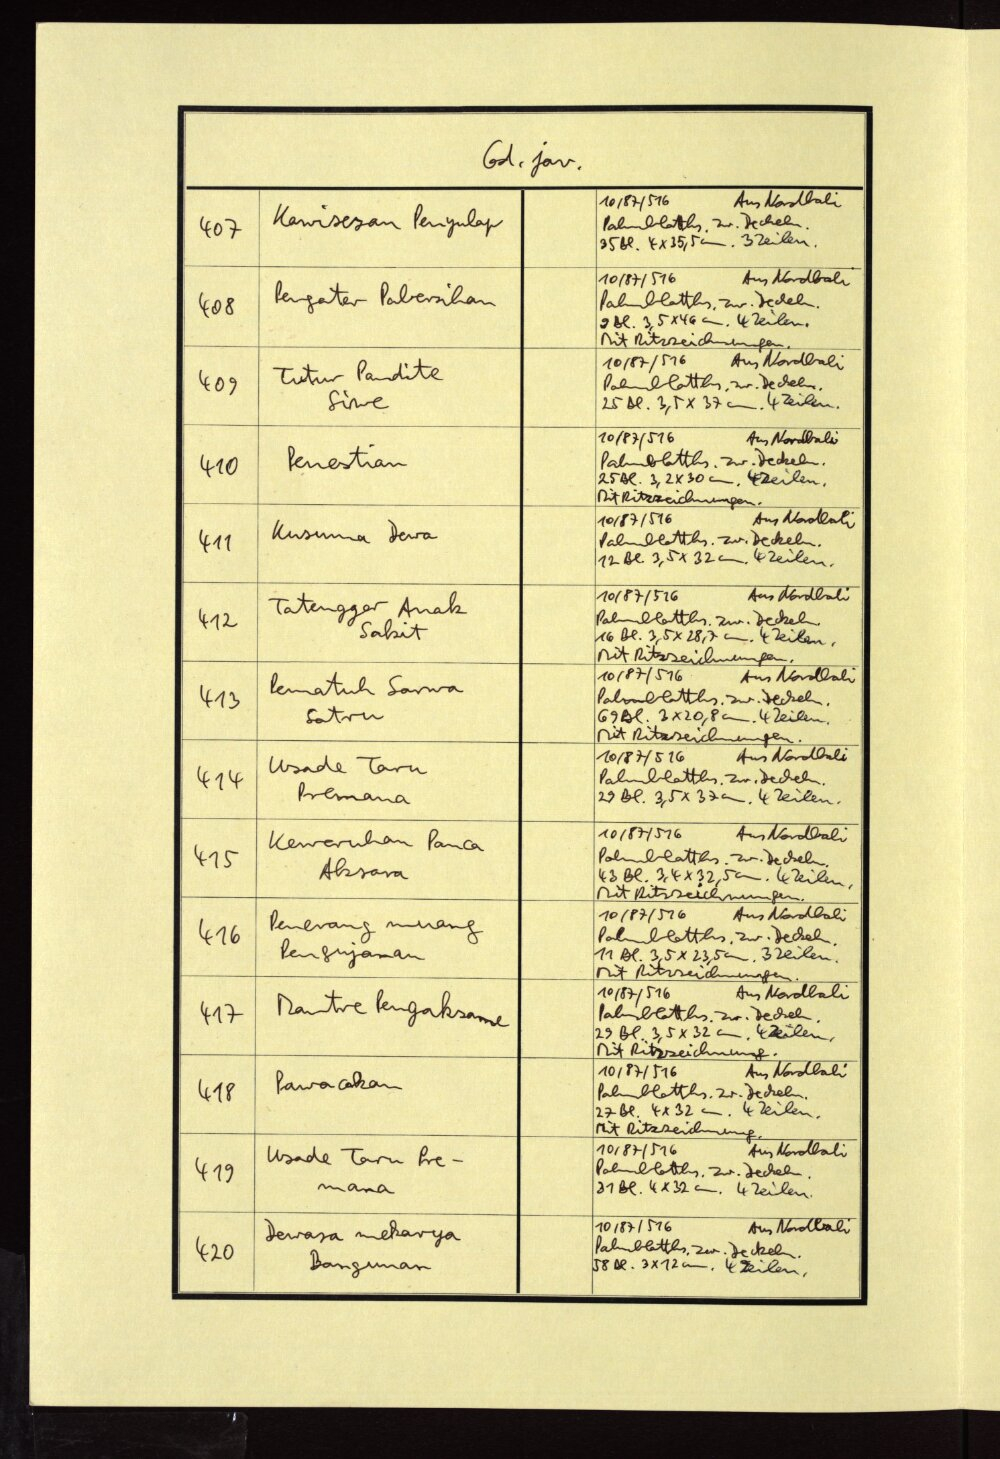 Cod. jav.
407 Kawisesan Pengulap
10/87/516 Aus Nordbali
Palmblatths. zw. Deckeln.
35 Bl. 4 x 35,5 cm. 3 Zeilen.
408 Pengater Palversihan
10/87/516 Aus Nordbali
Palmblatths. zw. Deckeln.
9 Bl. 3,5 x 46 cm. 4 Zeilen.
Mit Ritzzeichnungen.
409 Tutur Pandite
Siwe
10/87/516 Aus Nordbali
Palmblatths. zw. Deckeln.
25 Bl. 3,5 x 37 cm. 4 Zeilen.
410 Penestian
10/87/516 Aus Nordbali
Palmblatths. zw. Deckeln.
25 Bl. 3,2 x 30 cm. 4 Zeilen.
Mit Ritzzeichnungen.
411 Kusuma Dewa
10/87/516 Aus Nordbali
Palmblatths. zw. Deckeln.
12 Bl. 3,5 x 32 cm. 4 Zeilen.
412 Tatengger Anak
Sakit
10/87/516 Aus Nordbali
Palmblatths. zw. Deckeln
16 Bl. 3,5 x 28,7 cm. 4 Zeilen.
Mit Ritzzeichnungen.
413 Pematuh Sarwa
Satru
10/87/516 Aus Nordbali
Palmblatths. zw. Deckeln.
69 Bl. 3 x 20,8 cm. 4 Zeilen.
Mit Ritzzeichnungen.
414 Usade Taru
Premana
10/87/516 Aus Nordbali
Palmblatths. zw. Deckeln.
29 Bl. 3,5 x 37 cm. 4 Zeilen.
415 Kaweruhan Panca
Aksara
10/87/516 Aus Nordbali
Palmblatths. zw. Deckeln.
43 Bl. 3,4 x 32,5 cm. 4 Zeilen.
Mit Ritzzeichnungen.
416 Penerang muang
Pengujanan
10/87/516 Aus Nordbali
Palmblatths. zw. Deckeln.
11 Bl. 3,5 x 23,5 cm. 3 Zeilen.
Mit Ritzzeichnungen.
417 Mantre Pengaksame
10/87/516 Aus Nordbali
Palmblatths. zw. Deckeln.
29 Bl. 3,5 x 32 cm. 4 Zeilen.
Mit Ritzzeichnung.
418 Pawacakan
10/87/516 Aus Nordbali
Palmblatths. zw. Deckeln.
27 Bl. 4 x 32 cm. 4 Zeilen.
Mit Ritzzeichnung.
419 Usade Taru Pre-
mana
10/87/516 Aus Nordbali
Palmblatths. zw. Deckeln.
31 Bl. 4 x 32 cm. 4 Zeilen.
420 Dewasa mekarya
Bangunan
10/87/516 Aus Nordbali
Palmblatths. zw. Deckeln.
58 Bl. 3 x 12 cm. 4 Zeilen.